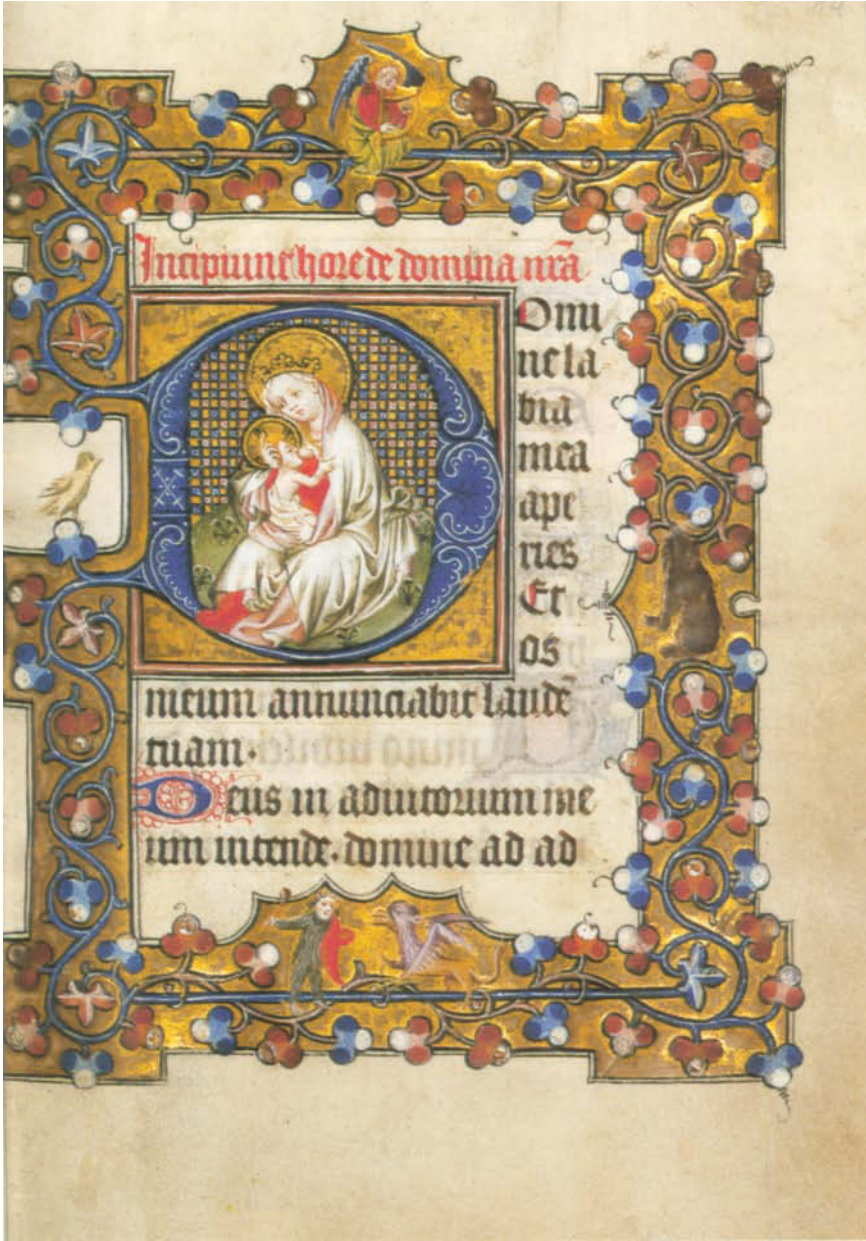 Incipiunt hore de domina nr̄a
DOmi
ne la
bia
mea
ape
ries
Et
os
meum annunciabit laudē
tuam·
Deus in adiutorium me
um intende. domine ad ad